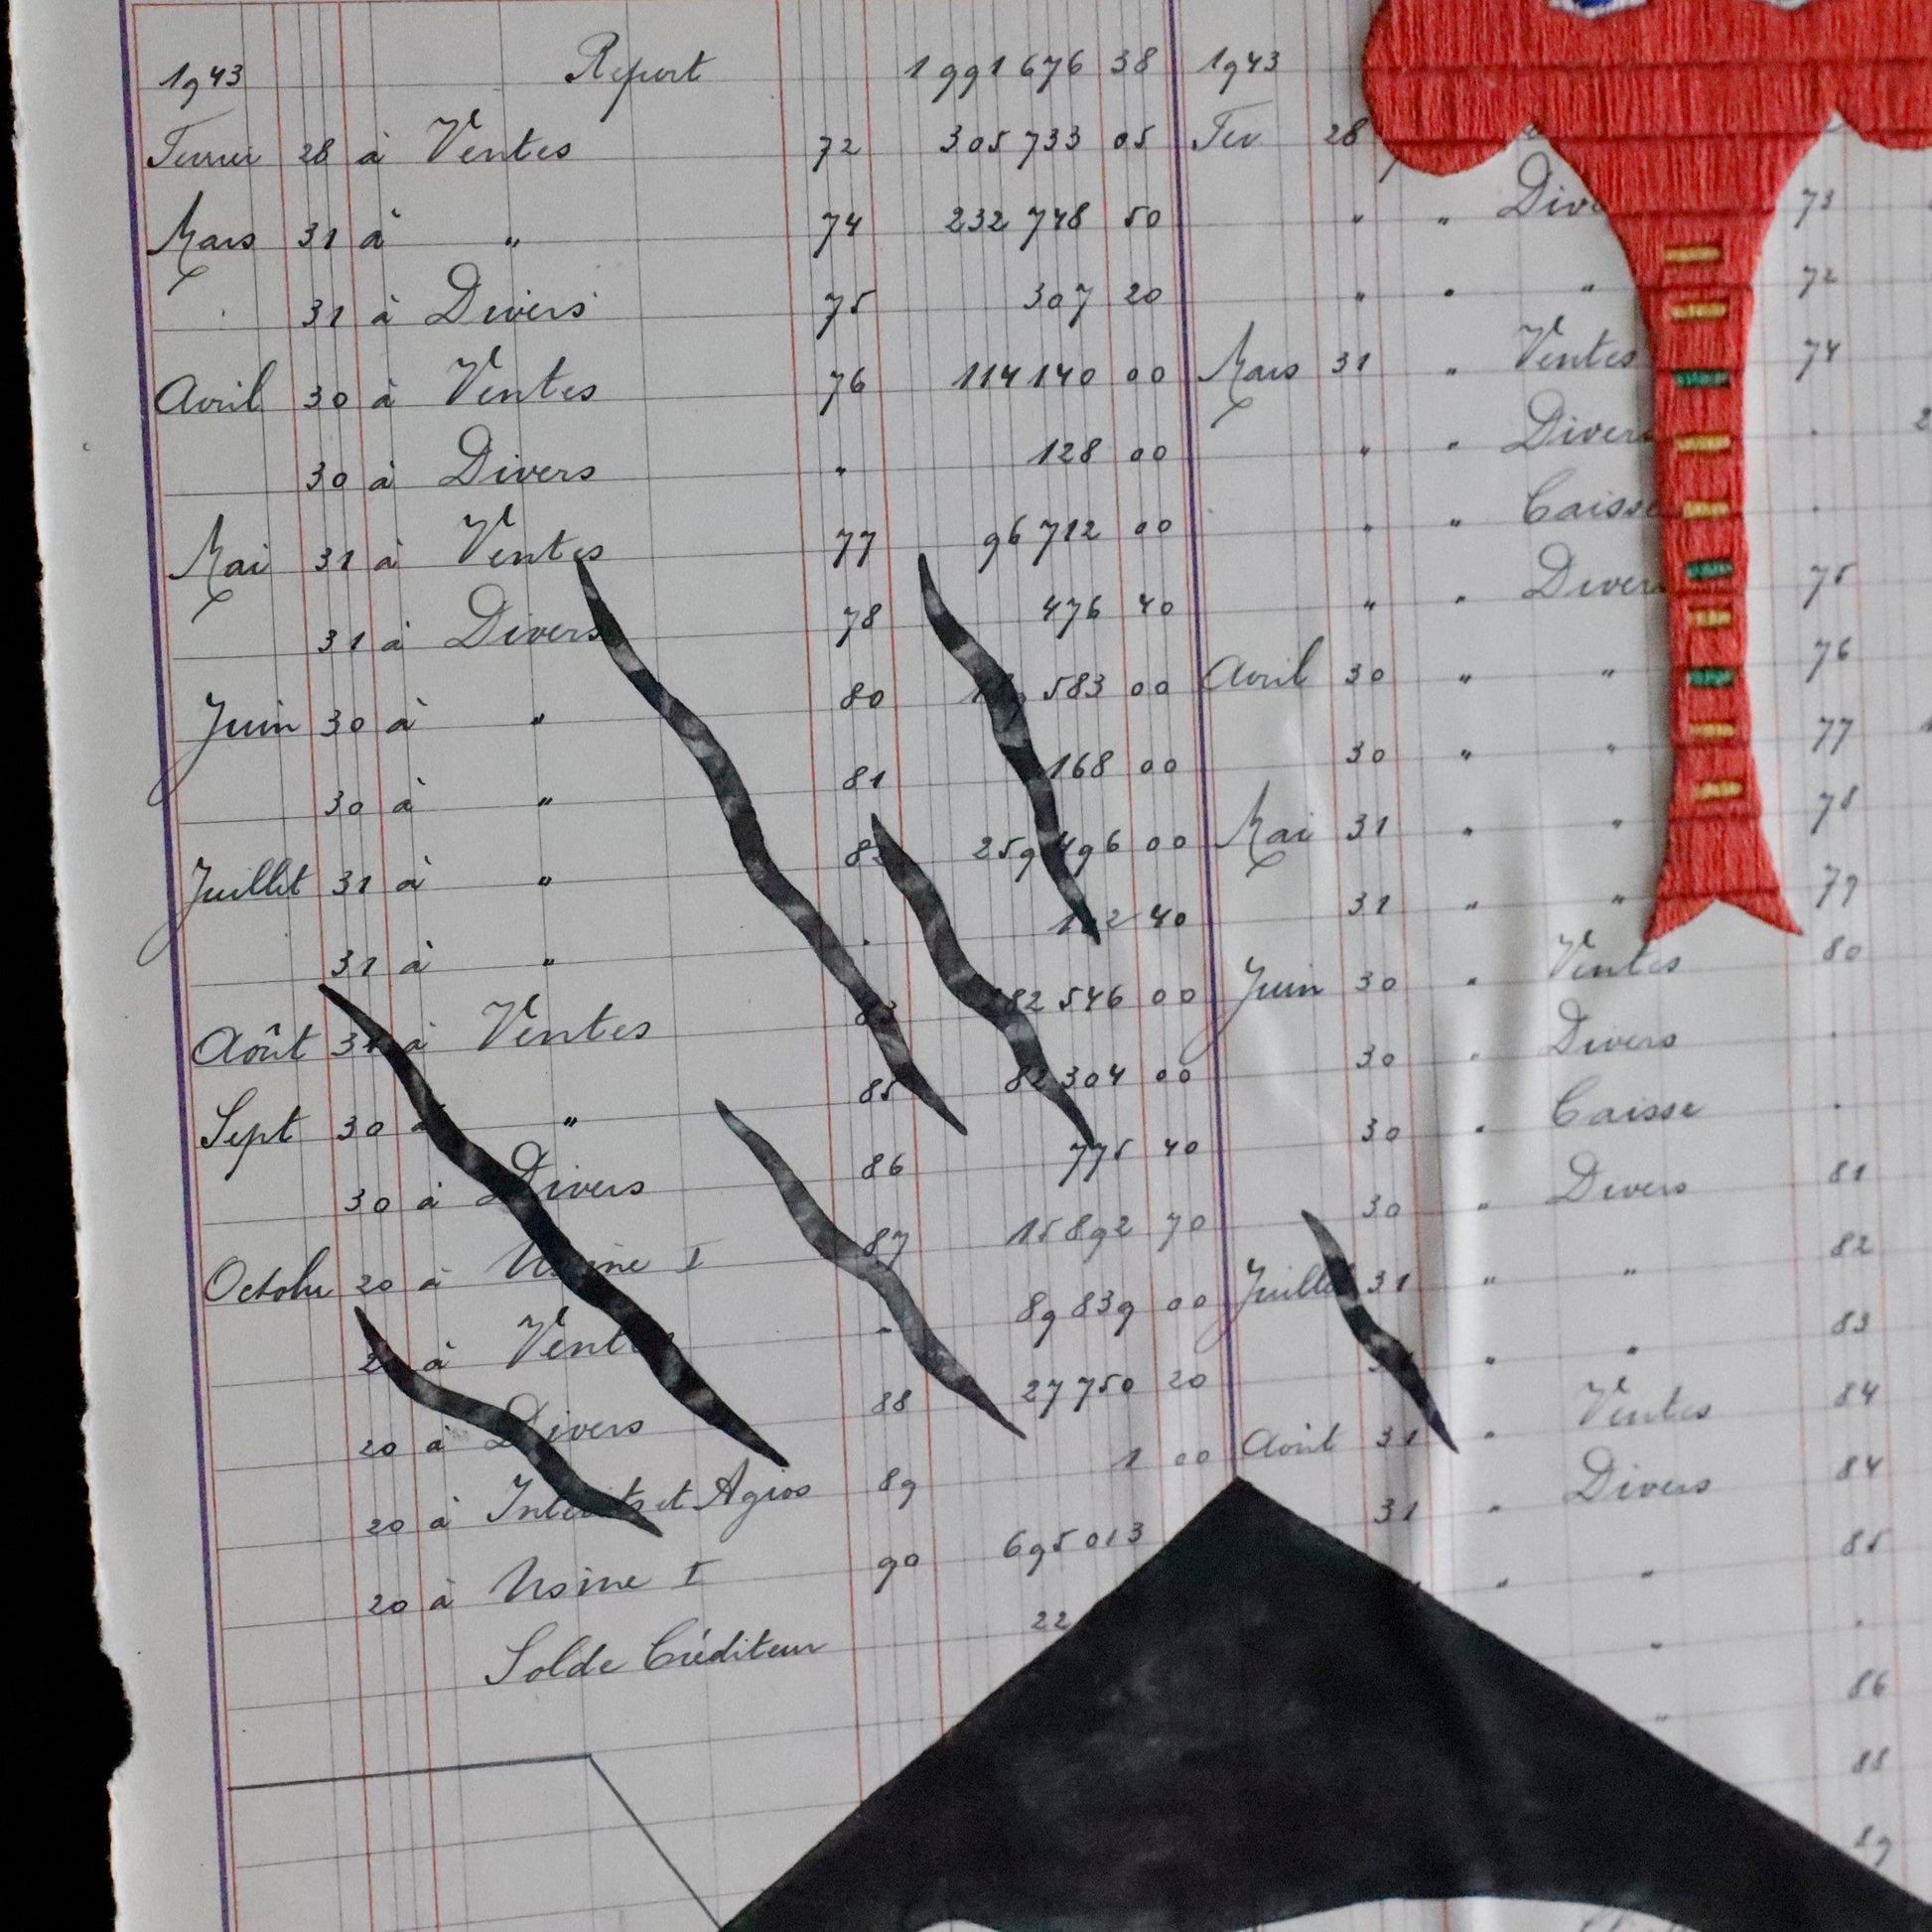 1943 Report 1 991 676 38
Fevrier 28 à Ventes 72 305 733 05
Mars 31 à " 74 232 748 50
31 à Divers 75 307 20
Avril 30 à Ventes 76 114 140 00
30 à Divers " 128 00
Mai 31 à Ventes 77 96 712 00
31 à Divers 78 476 40
Juin 30 à " 80 583 00
30 à " 81 168 00
Juillet 31 à " 259 496 00
31 à " " 40
Août 31 à Ventes 82 546 00
Sept 30 à " 85 82 304 00
30 à Divers 86 775 40
Octobre 20 à Usine I 87 15 892 70
à Vent " 89 839 00
20 à Divers 88 27 750 20
20 à Intérêts et Agios 89 1 00
20 à Usine I 90 695 013
Solde Créditeur 22
1943
Fev 28
" " Div 73
" " " 72
Mars 31 " Ventes 74
" " Divers "
" " Caisse "
" " Divers 75
Avril 30 " " 76
30 " " 77
Mai 31 " " 78
31 " " 79
Juin 30 " Ventes 80
30 " Divers "
30 " Caisse "
30 " Divers 81
Juillet 31 " " 82
" " 83
Août 31 " Ventes 84
31 " Divers 84
" " " 85
" "
" 86
88
89